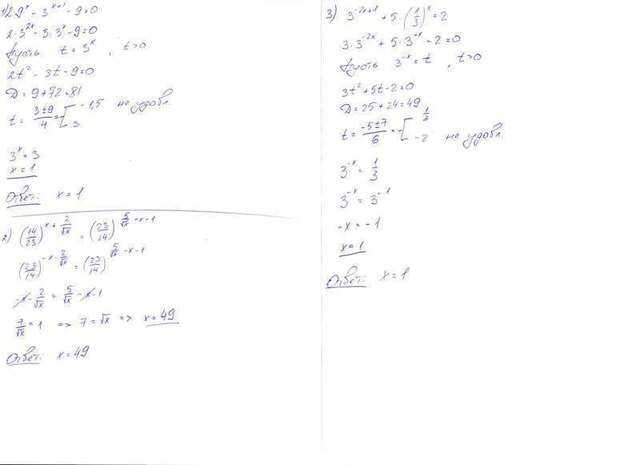 1) 2·9ˣ - 3ˣ⁺¹ - 9 = 0
2·3²ˣ - 3·3ˣ - 9 = 0
Пусть t = 3ˣ, t>0
2t² - 3t - 9 = 0
D = 9 + 72 = 81
t = (3±9)/4 = [ -1,5 не удовл.
3
3ˣ = 3
x = 1
Ответ: x = 1
2) (14/23)^(x + 2/√x) = (23/14)^(5/√x - x - 1)
(23/14)^(-x - 2/√x) = (23/14)^(5/√x - x - 1)
-x - 2/√x = 5/√x - x - 1
7/√x = 1 => 7 = √x => x = 49
Ответ: x = 49
3) 3⁻²ˣ⁺¹ + 5·(1/3)ˣ = 2
3·3⁻²ˣ + 5·3⁻ˣ - 2 = 0
Пусть 3⁻ˣ = t, t>0
3t² + 5t - 2 = 0
D = 25 + 24 = 49
t = (-5±7)/6 = [ 1/3
-2 не удовл.
3⁻ˣ = 1/3
3⁻ˣ = 3⁻¹
-x = -1
x = 1
Ответ: x = 1